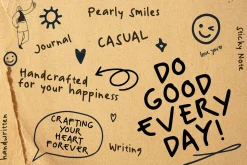 Pearly Smiles
journal
CASUAL
love you
Sticky Note
Handcrafted
for your happiness
DO
GOOD
EVERY
DAY!
handwritten
CRAFTING
YOUR
HEART
FOREVER
Writing